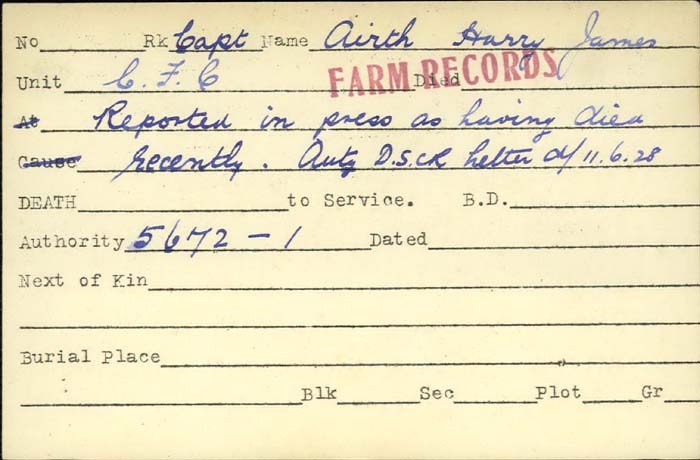 No Rk Capt Name Airth Harry James
Unit C. F. C Died
FARM RECORDS
At Reported in press as having died
Cause recently. Auty D.S.C.R letter d/ 11.6.28
DEATH to Service. B.D.
Authority 5672 - 1 Dated
Next of Kin
Burial Place
Blk Sec Plot Gr